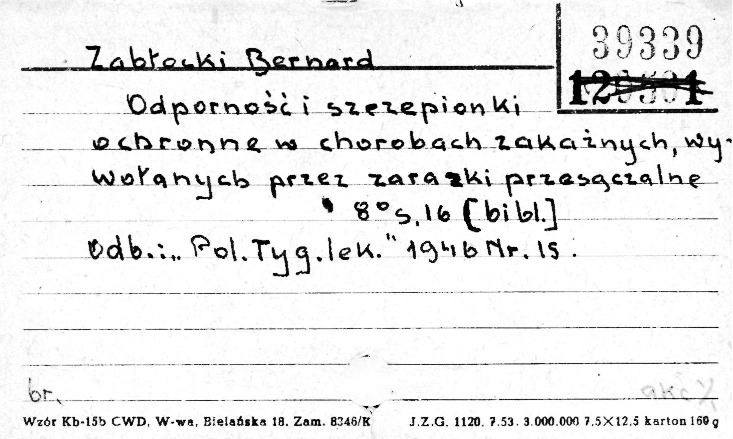 39339
Zabłocki Bernard
Odporność i szczepionki
ochronne w chorobach zakaźnych, wy-
wołanych przez zarazki przesączalne
8° s. 16 [bibl.]
Odb.: „Pol. Tyg. lek." 1946 Nr. 15.
br.
akc
Wzór Kb-15b CWD, W-wa, Bielańska 18. Zam. 8346/K J.Z.G. 1120. 7.53. 3.000.000 7.5×12.5 karton 160 g